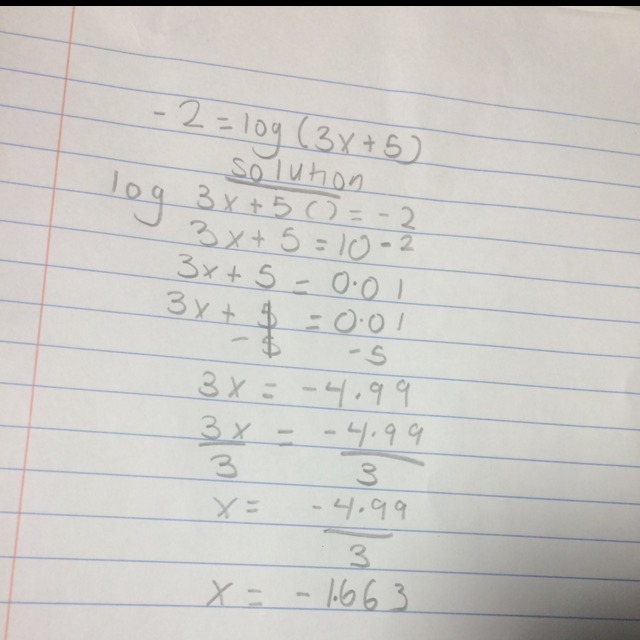 -2 = log (3x+5)
solution
log 3x+5 () = -2
3x+5 = 10-2
3x+5 = 0.01
3x+5 = 0.01
-5 -5
3x = -4.99
3x = -4.99
3 3
x = -4.99
3
x = -1.663